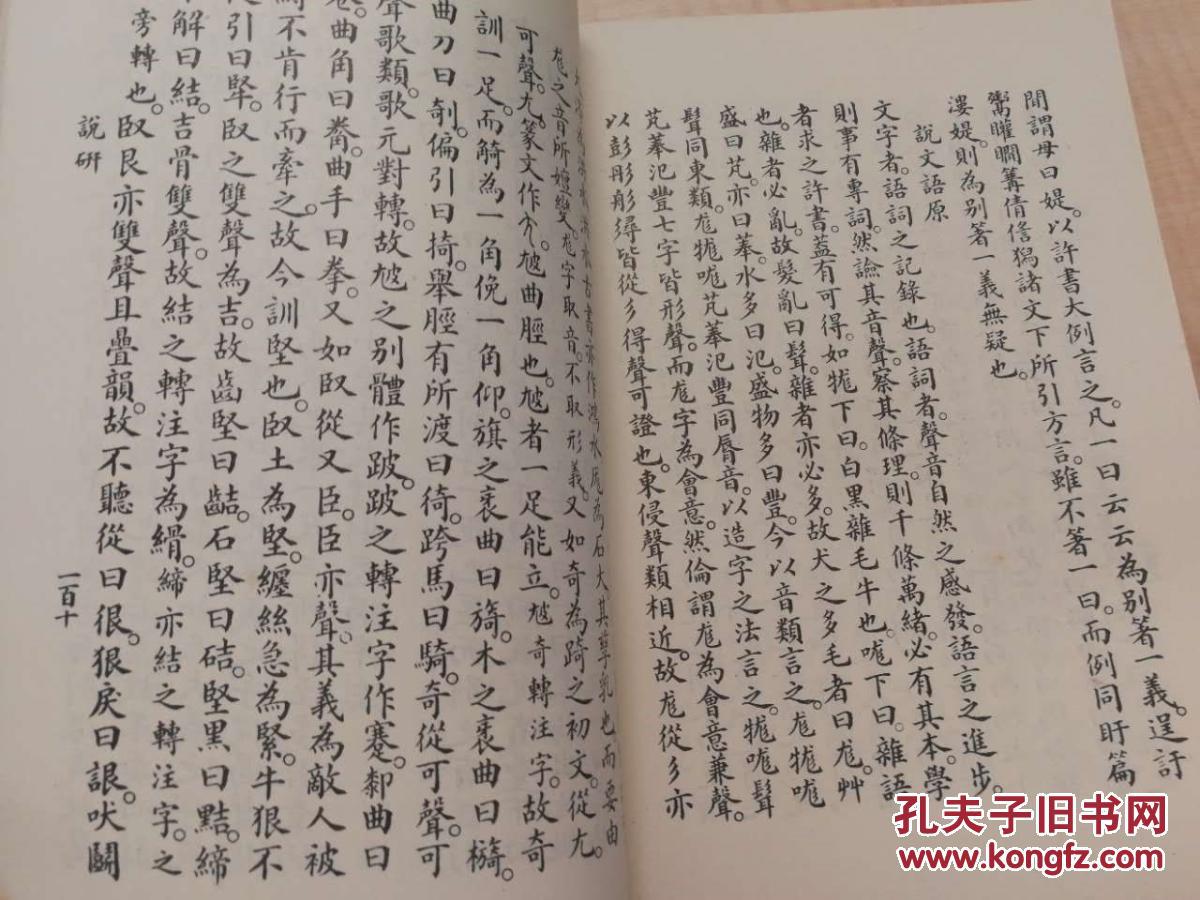 間謂母曰媞。以許書大例言之。凡一曰云云為別著一義。逞訏
鬻矔瞷篝倩儋獡諸文下所引方言。雖不著一曰。而例同盱篇
漊媞。則為別著一義無疑也。
說文語原
文字者。語詞之記錄也。語詞者。聲音自然之感發。語言之進步。
則事有專詞。然諗其音聲。察其條理。則千條萬緒。必有其本。學
者求之許書。蓋有可得。如牻下曰。白黑雜毛牛也。哤下曰。雜語
也。雜者必亂。故髮亂曰髶。雜者亦必多。故犬之多毛者曰尨。艸
盛曰芃。亦曰菶。水多曰汜。盛物多曰豐。今以音類言之。尨牻哤
髶同東類。尨牻哤芃菶汜豐同脣音。以造字之法言之。牻哤髶
芃菶汜豐七字皆形聲。而尨字為會意。然倫謂尨為會意兼聲。
以彭彤彤㝷皆從彡得聲可證也。東侵聲類相近。故尨從彡亦
水古書亦作鴻水厖為石大其孳乳也而要由
尨之音所嬗變。尨字取音。不取形義。又如奇為踦之初文。從尢。
可聲。尢。篆文作𠔽。尳曲脛也。尳者一足能立。尳奇轉注字。故奇
訓一足。而觭為一角俛一角仰。旗之衺曲曰旖。木之衺曲曰檹。
曲刀曰剞。偏引曰掎。舉脛有所渡曰徛。跨馬曰騎。奇從可聲。可
聲歌類。歌元對轉。故尳之別體作跛。跛之轉注字作蹇。郀曲曰
卷。曲角曰觠。曲手曰拳。又如臤從又臣。臣亦聲。其義為敵人被
不肯行而牽之。故今訓堅也。臤土為堅。纏絲急為緊。牛很不
從引曰掔。臤之雙聲為吉。故齒堅曰𪘂。石堅曰硈。堅黑曰黠。締
解曰結。吉骨雙聲。故結之轉注字為縎。締亦結之轉注字。之
旁轉也。臤艮亦雙聲且疊韻。故不聽從曰很。狠戾曰詪。吠鬭
說研
一百十
孔夫子旧书网
www.kongfz.com